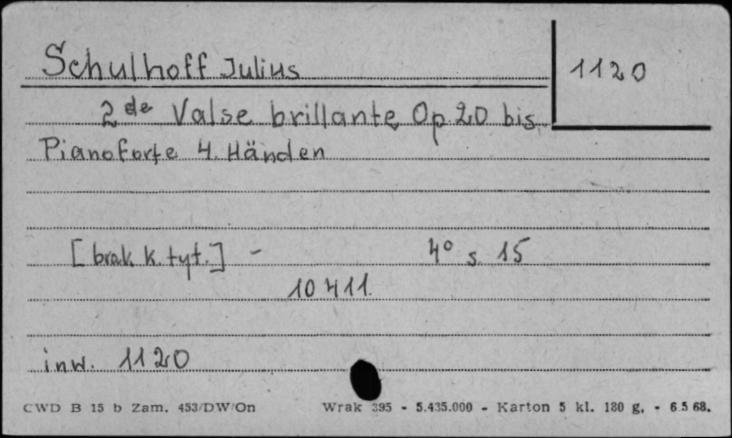 Schulhoff Julius
1120
2de Valse brillante Op 20 bis
Pianoforte 4. Händen
[brak k. tyt.] - 4° s. 15
10 411.
inw. 1120
CWD B 15 b Zam. 453/DW/On Wrak 395 - 5.435.000 - Karton 5 kl. 180 g. - 6.5 68.